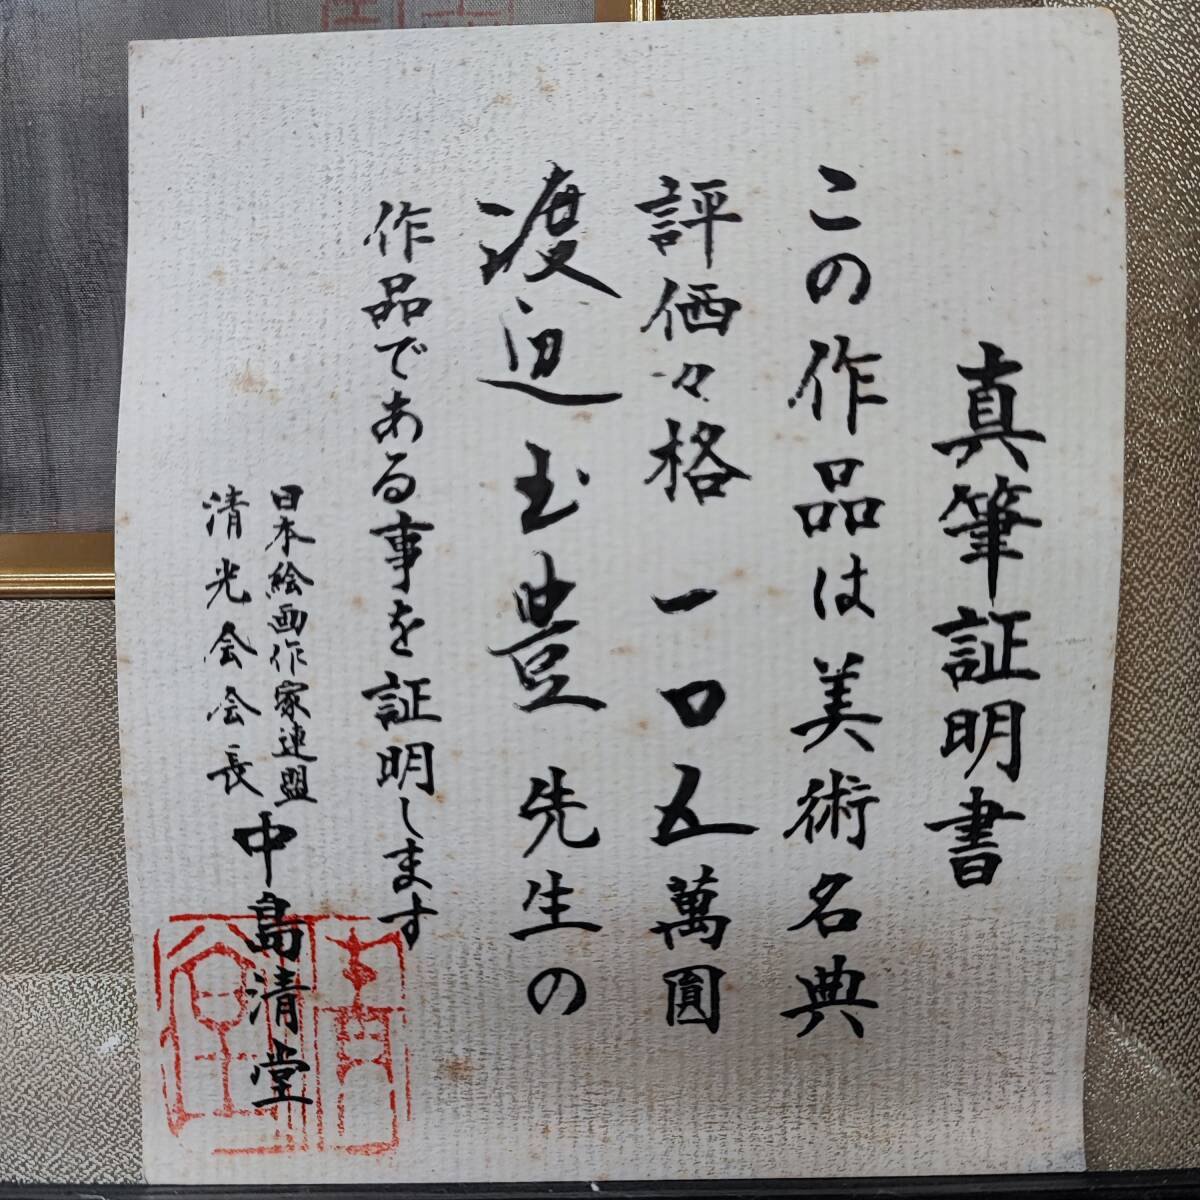 真筆証明書
この作品は美術名典
評価々格一〇五萬圓
渡辺玉豊先生の
作品である事を証明します
日本絵画作家連盟
清光会会長
中島清堂